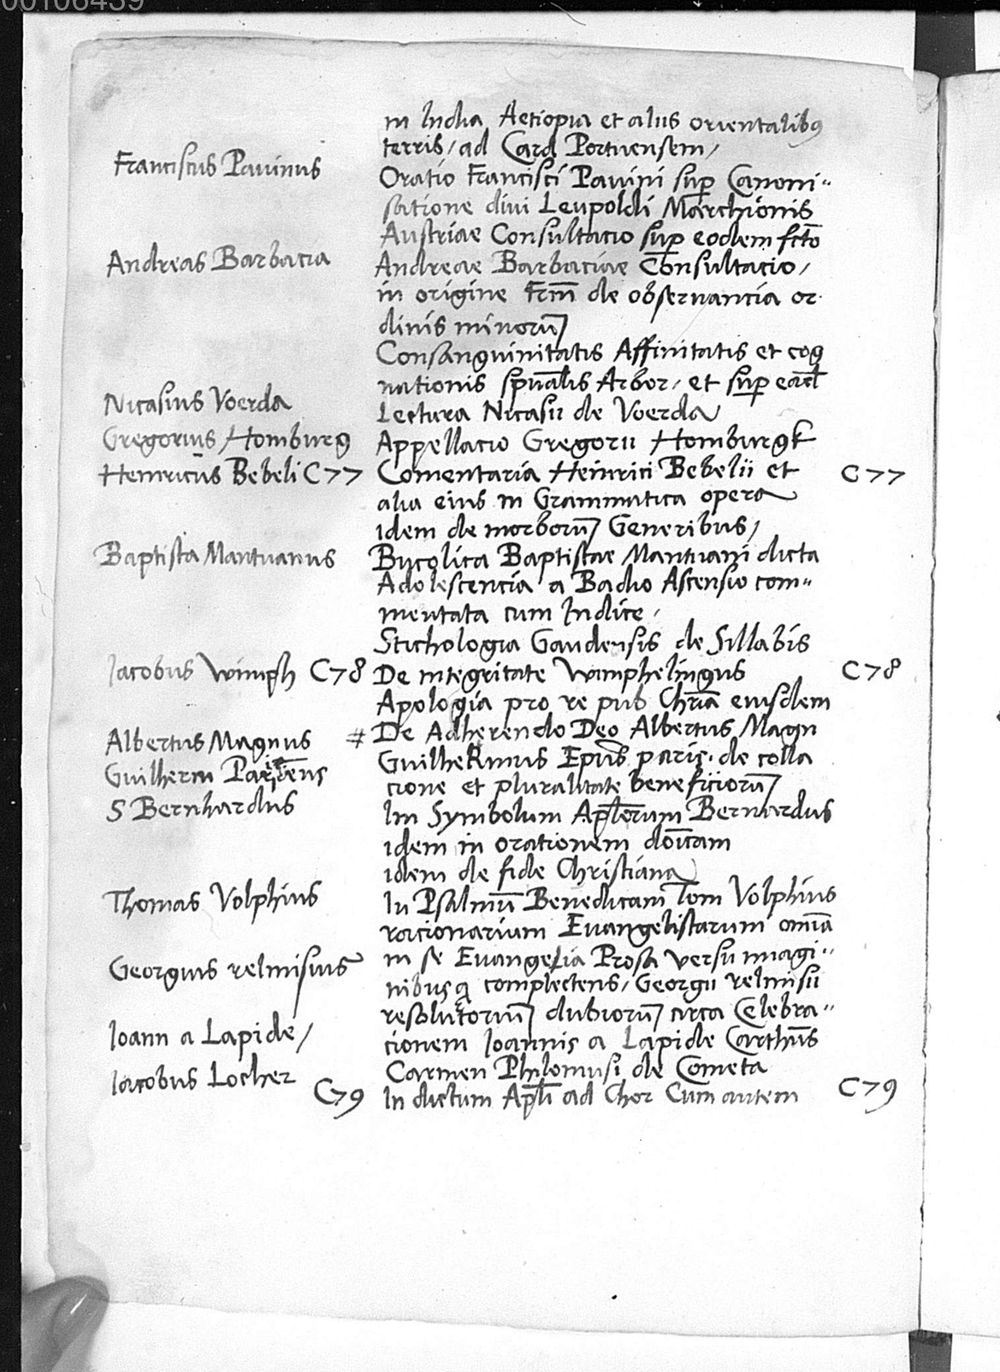 00106439
in India Aetiopia et aliis orientalibꝰ
terris / ad Card Portuensem /
Franciscus Pavinus
Oratio Francisci Pavini sup Canoni-
satione divi Leupoldi Marchionis
Austriae Consultacio sup eodem fcto
Andreas Barbacia Andreae Barbaciae Consultacio /
in origine Frm de observancia or
dinis minorum
Consanguinitatis Affinitatis et cog
nationis spualis Arbor / et sup ead
Nicasius Voerda Lectura Nicasii de Voerda
Gregorius Homburg Appellacio Gregorii Homburgk
Heinricus Bebeli C77 Comentaria Heinrici Bebelii et C77
alia eius in Grammatica opera
idem de morborum Generibus /
Baptista Mantuanus Bucolica Baptistae Mantuani dicta
Adolescencia a Badio Ascensio com-
mentata cum Indice /
Stichologia Gaudensis de Sillabis
Iacobus Wimph C78 De integritate Wimphelingus C78
Apologia pro re pub Chria eiusdem
Albertus Magnus # De Adherendo Deo Albertus Magn
Guilherm Parisiens Guilhelmus Epus paris. de colla
cione et pluralitate beneficiorum
S Bernhardus Im Symbolum Aplorum Bernardus
idem in orationem doicam
idem de fide Christiana
Thomas Volphius In Psalmu Benedicam Tom Volphius
racionarium Evangelistarum omia
in se Evangelia Prosa versu imagi-
Georgius relmisius nibusq complectens / Georgii relmisii
resolutorium dubiorum circa Celebra-
Ioann a Lapide / cionem Ioannis a Lapide Carthus
Iacobus Locher Carmen Philomusi de Cometa
C79 In dictum Apli ad Chor Cum autem C79